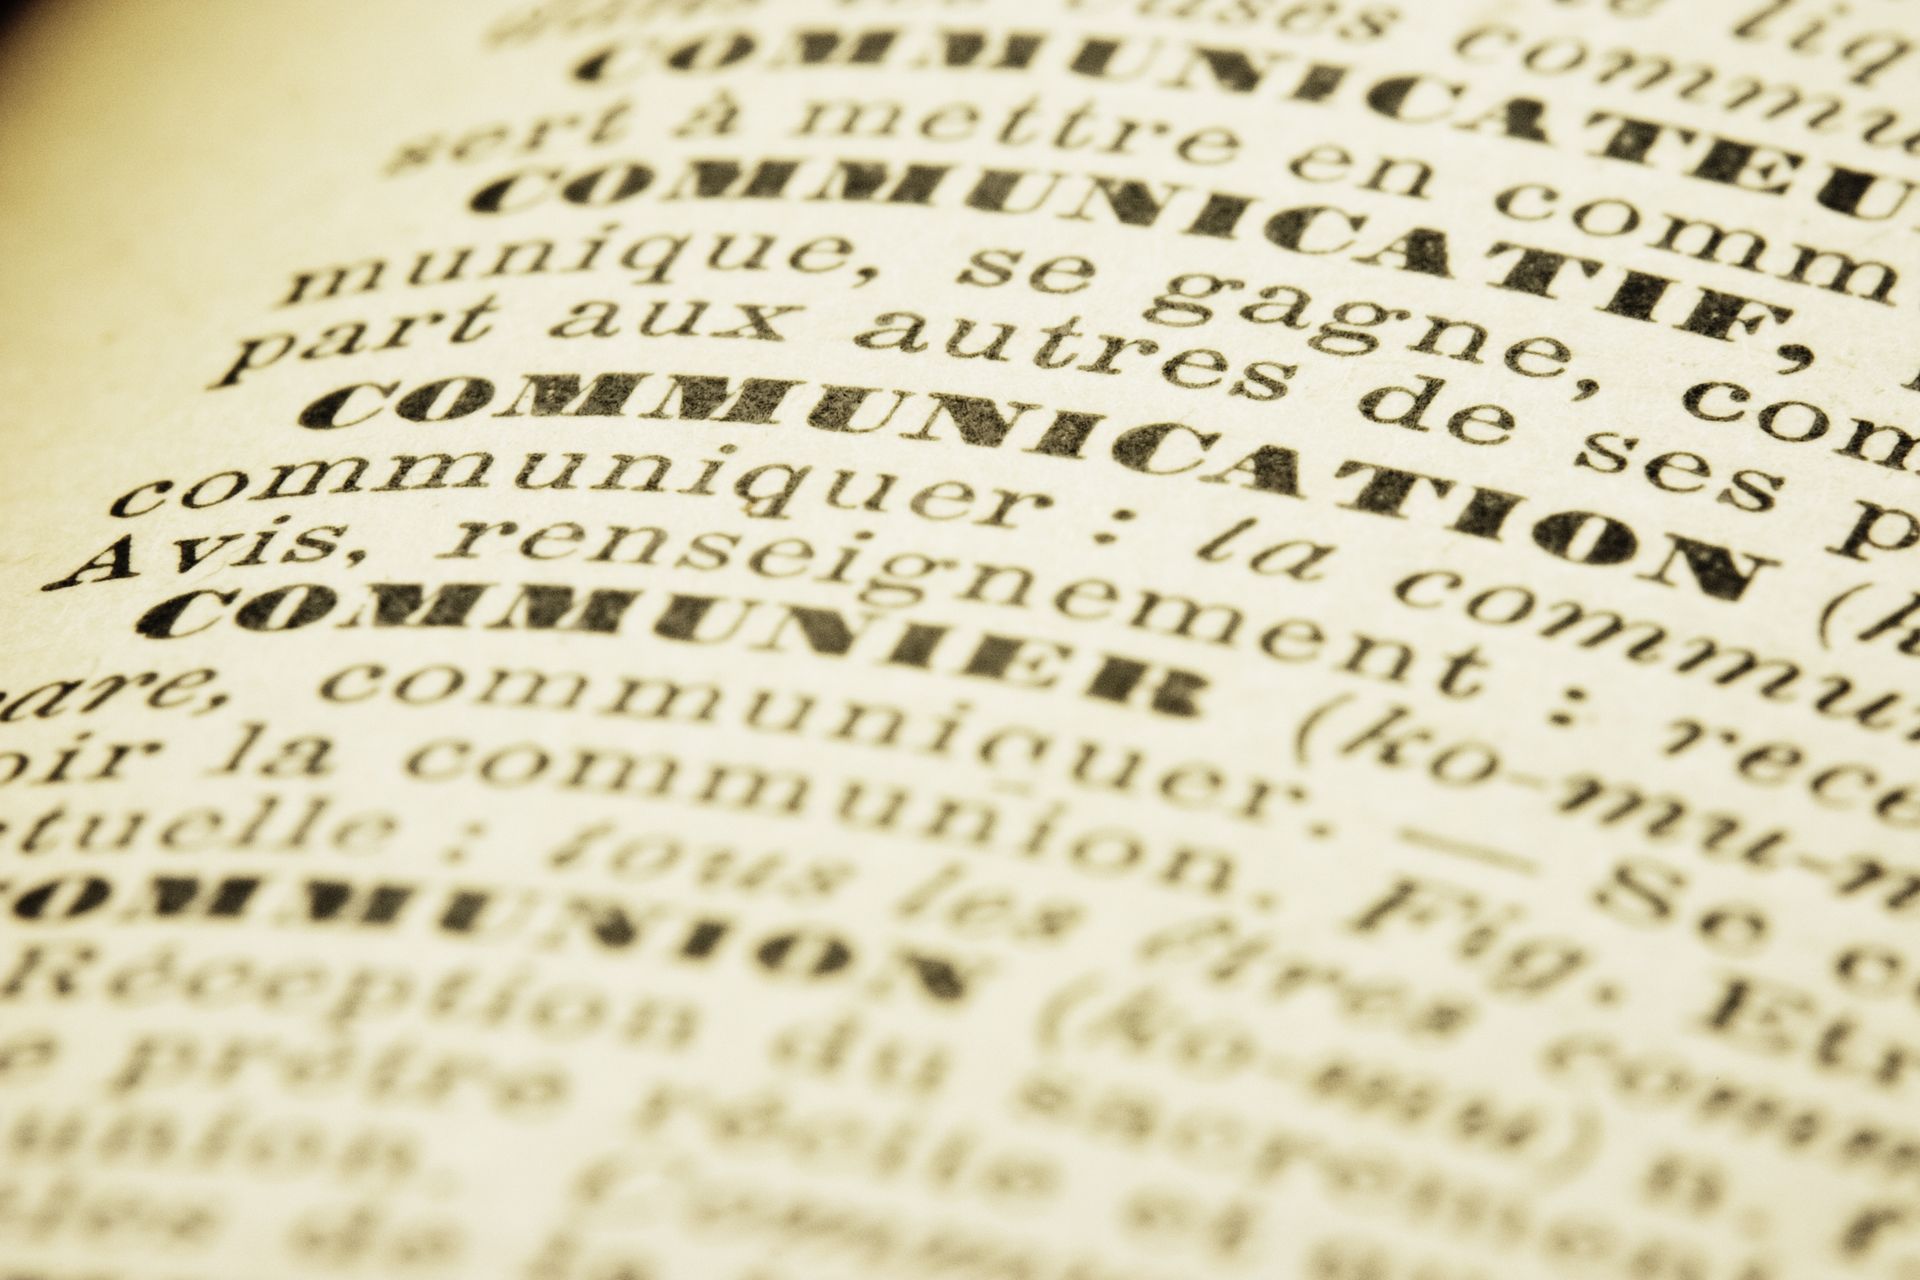 liq
dans les vases commu
COMMUNICATEU
sert à mettre en comm
COMMUNICATIF,
munique, se gagne, com
part aux autres de ses p
COMMUNICATION (k
communiquer : la commun
Avis, renseignement : rece
COMMUNIER (ko-mu-n
care, communiquer. — Se c
oir la communion. Fig. Etr
tuelle : tous les êtres comm
COMMUNION (ko-mu) n.
Réception du sacrement
e prêtre récite et
union.
de